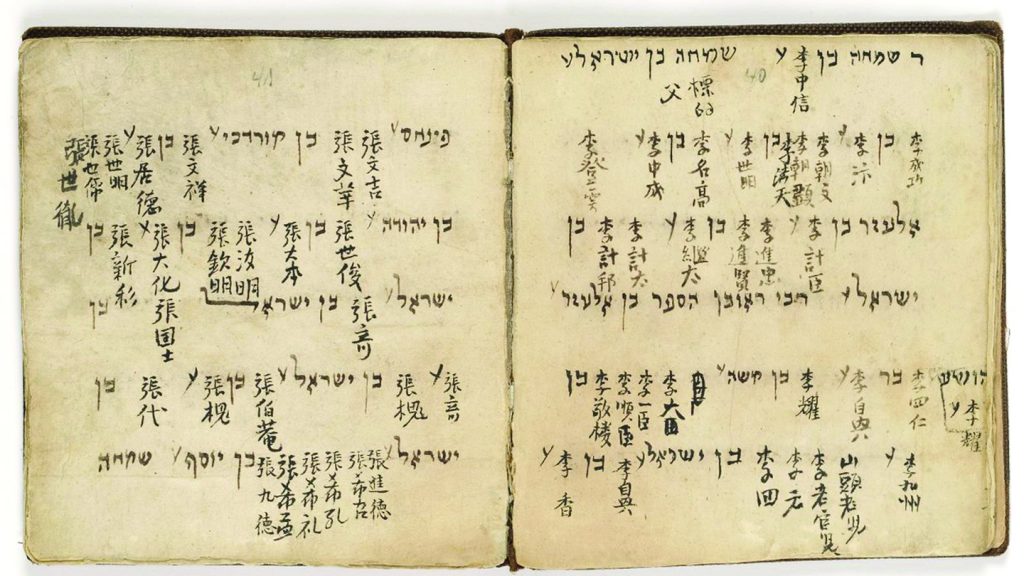 40
ר שמחה בן 李中信 ע שמחה בן ישראל ע
標的父
李成功 בן 李汴 ע 李朝文 李朝顯 李滿天 בן 李世明 ע 李名高 בן 李中成 ע 李登雲
אלעזר בן 李計臣 ע 李進忠 李進賢 בן 李繼太 ע 李計太 李計邦 בן
ישראל ע רבי ראובן הספר בן אלעזר ע
הושע ע 李耀 李四仁 בר 李自興 ע 李耀 בן משה ע 李大臣 李一臣 李順臣 李敬楼 בן
李九州 ע 山頭老兒 李老官兒 李元 李四 בן ישראל ע 李自興 בן 李香 ע
41
פינחס ע 張文吉 בן מורדכי ע 張文祥 בן 張居德 ע 張世明
בן יהודה ע 張世俊 בן 張大本 ע 張汝明 張欽明 בן 張大化 ע 張新彩 בן
ישראל ע 張奇 בן ישראל ע 張国士 בן
張奇 ע 張槐 בן ישראל ע 張伯菴 בן 張槐 ע 張代 בן
ישראל ע 張進德 張希召 張希孔 張希礼 張希孟 張九德 בן יוסף ע שמחה